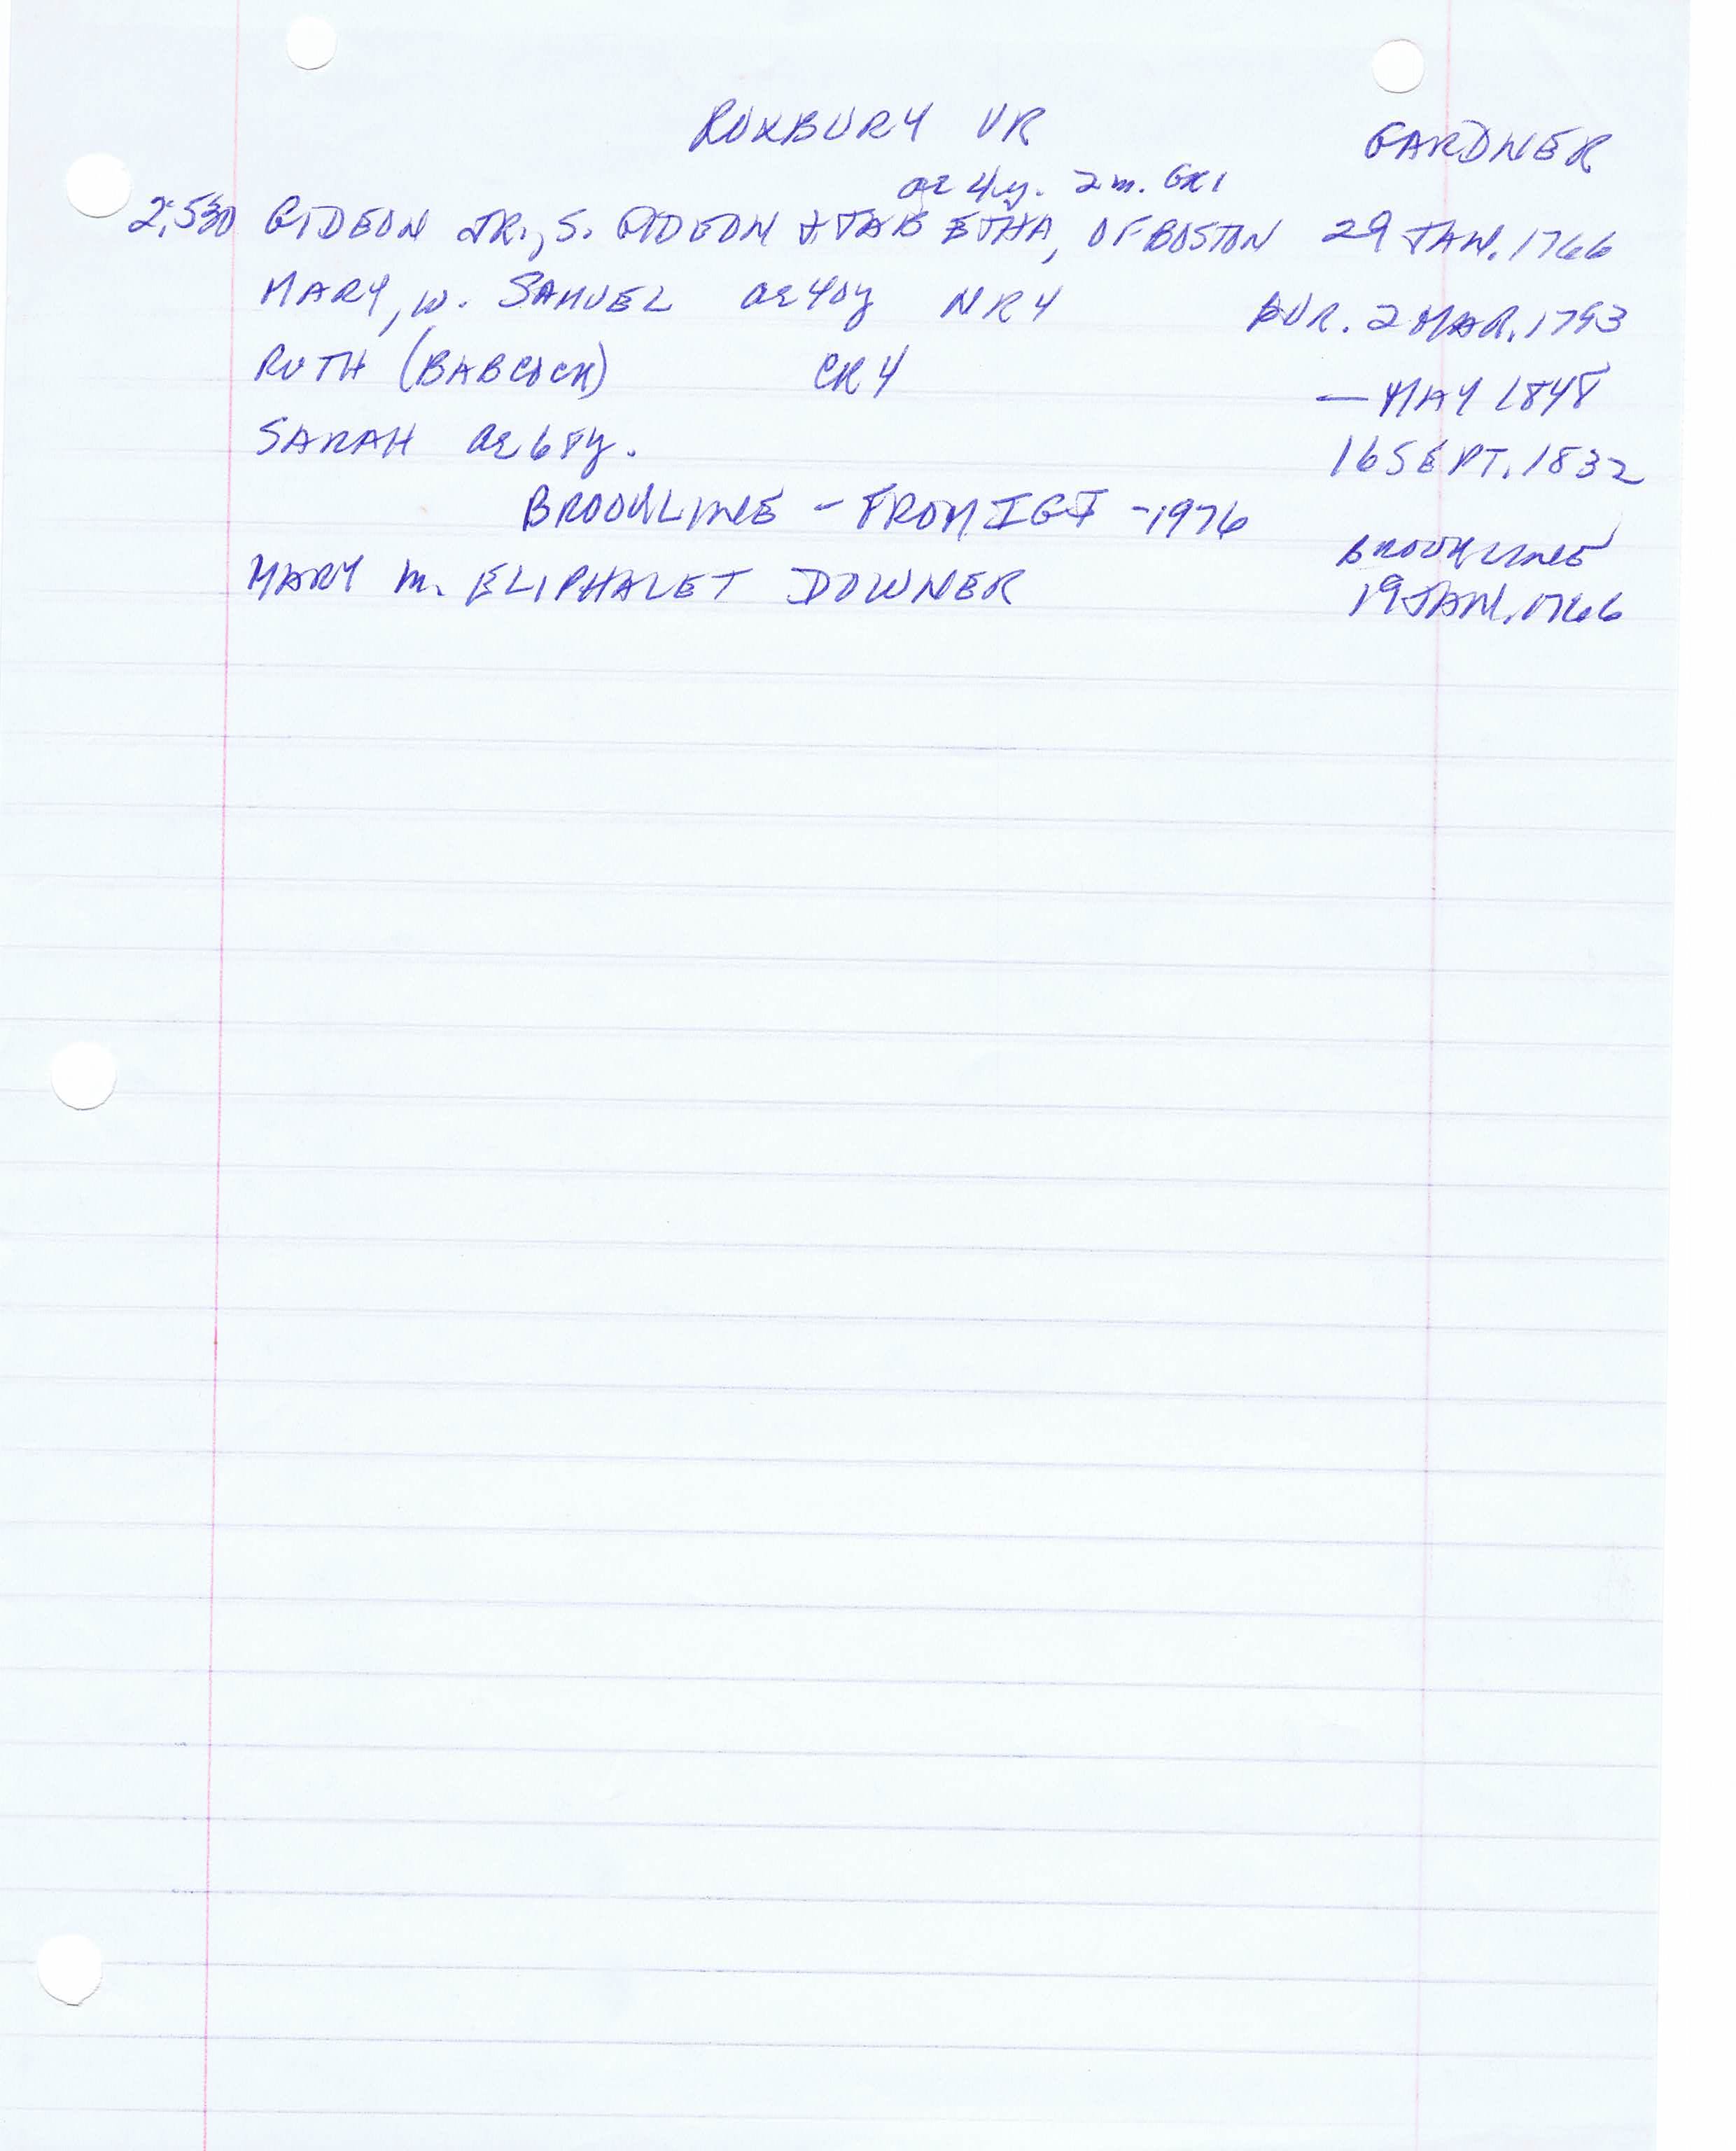 ROXBURY VR GARDNER
ae 4y. 2m. GR1
2:530 GIDEON JR., S. GIDEON & TABETHA, OF BOSTON 29 JAN. 1766
MARY, w. SAMUEL ae 40y NR4 BUR. 2 MAR. 1793
RUTH (BABCOCK) CR4 — MAY 1848
SARAH ae 68y. 16 SEPT. 1832
BROOKLINE - FROM IGI - 1976
BROOKLINE
MARY m. ELIPHALET DOWNER 19 JAN. 1766